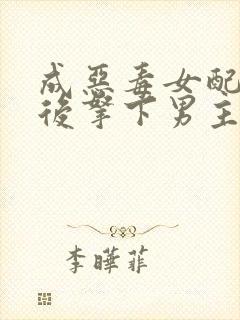 成惡毒女配
後拏下男主
李曄菲